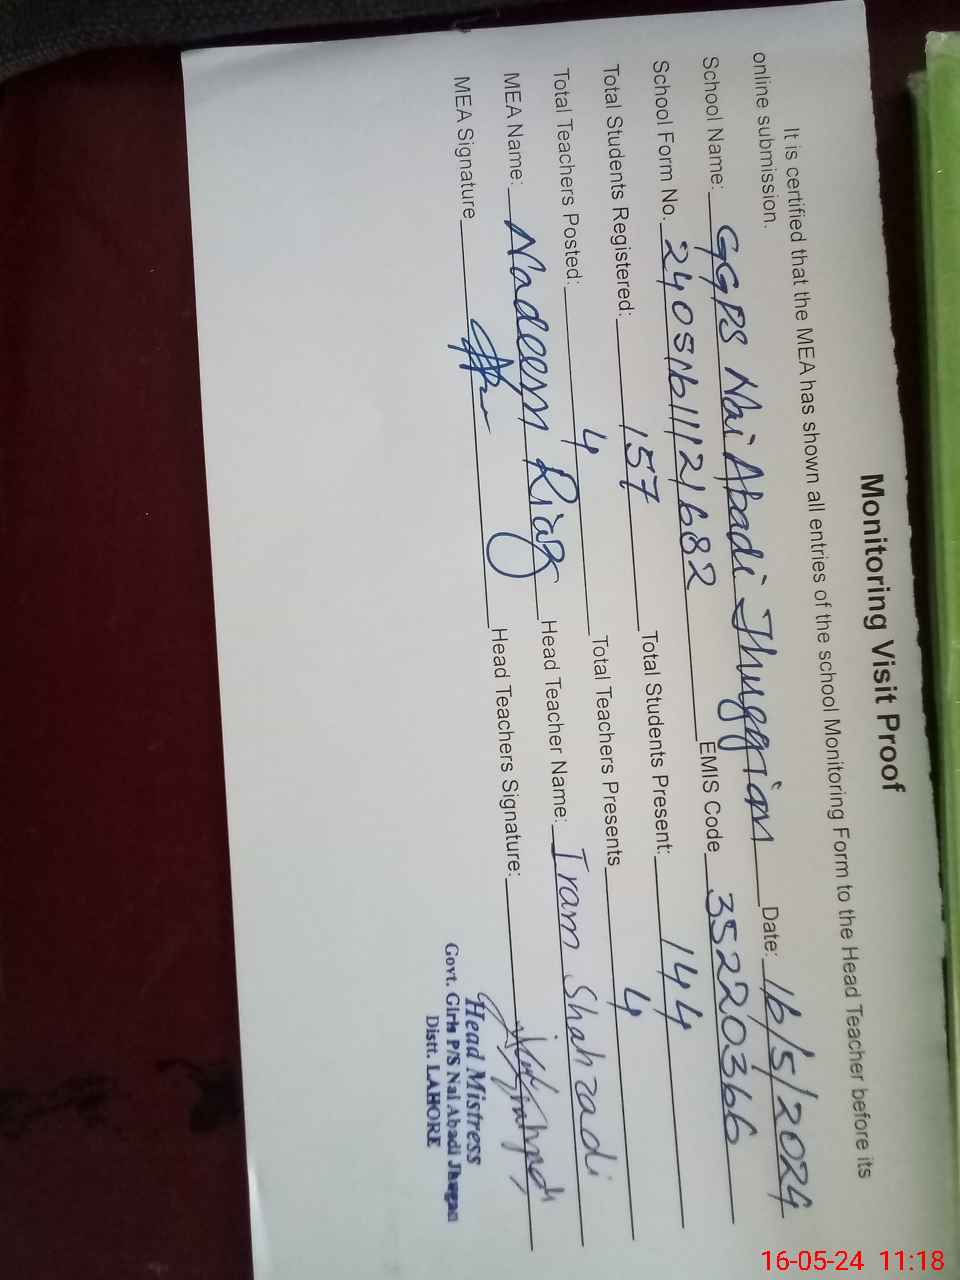 Monitoring Visit Proof
It is certified that the MEA has shown all entries of the school Monitoring Form to the Head Teacher before its
online submission.
School Name: GGPS Nai Abadi Jhuggian Date: 16/5/2024
School Form No. 24051611121682 EMIS Code 35220366
Total Students Registered: 157 Total Students Present: 144
Total Teachers Posted: 4 Total Teachers Presents 4
MEA Name: Nadeem Riaz Head Teacher Name: Iram Shahzadi
MEA Signature Head Teachers Signature:
Head Mistress
Govt. Girls P/S Nai Abadi Jhugan
Distt. LAHORE
16-05-24 11:18